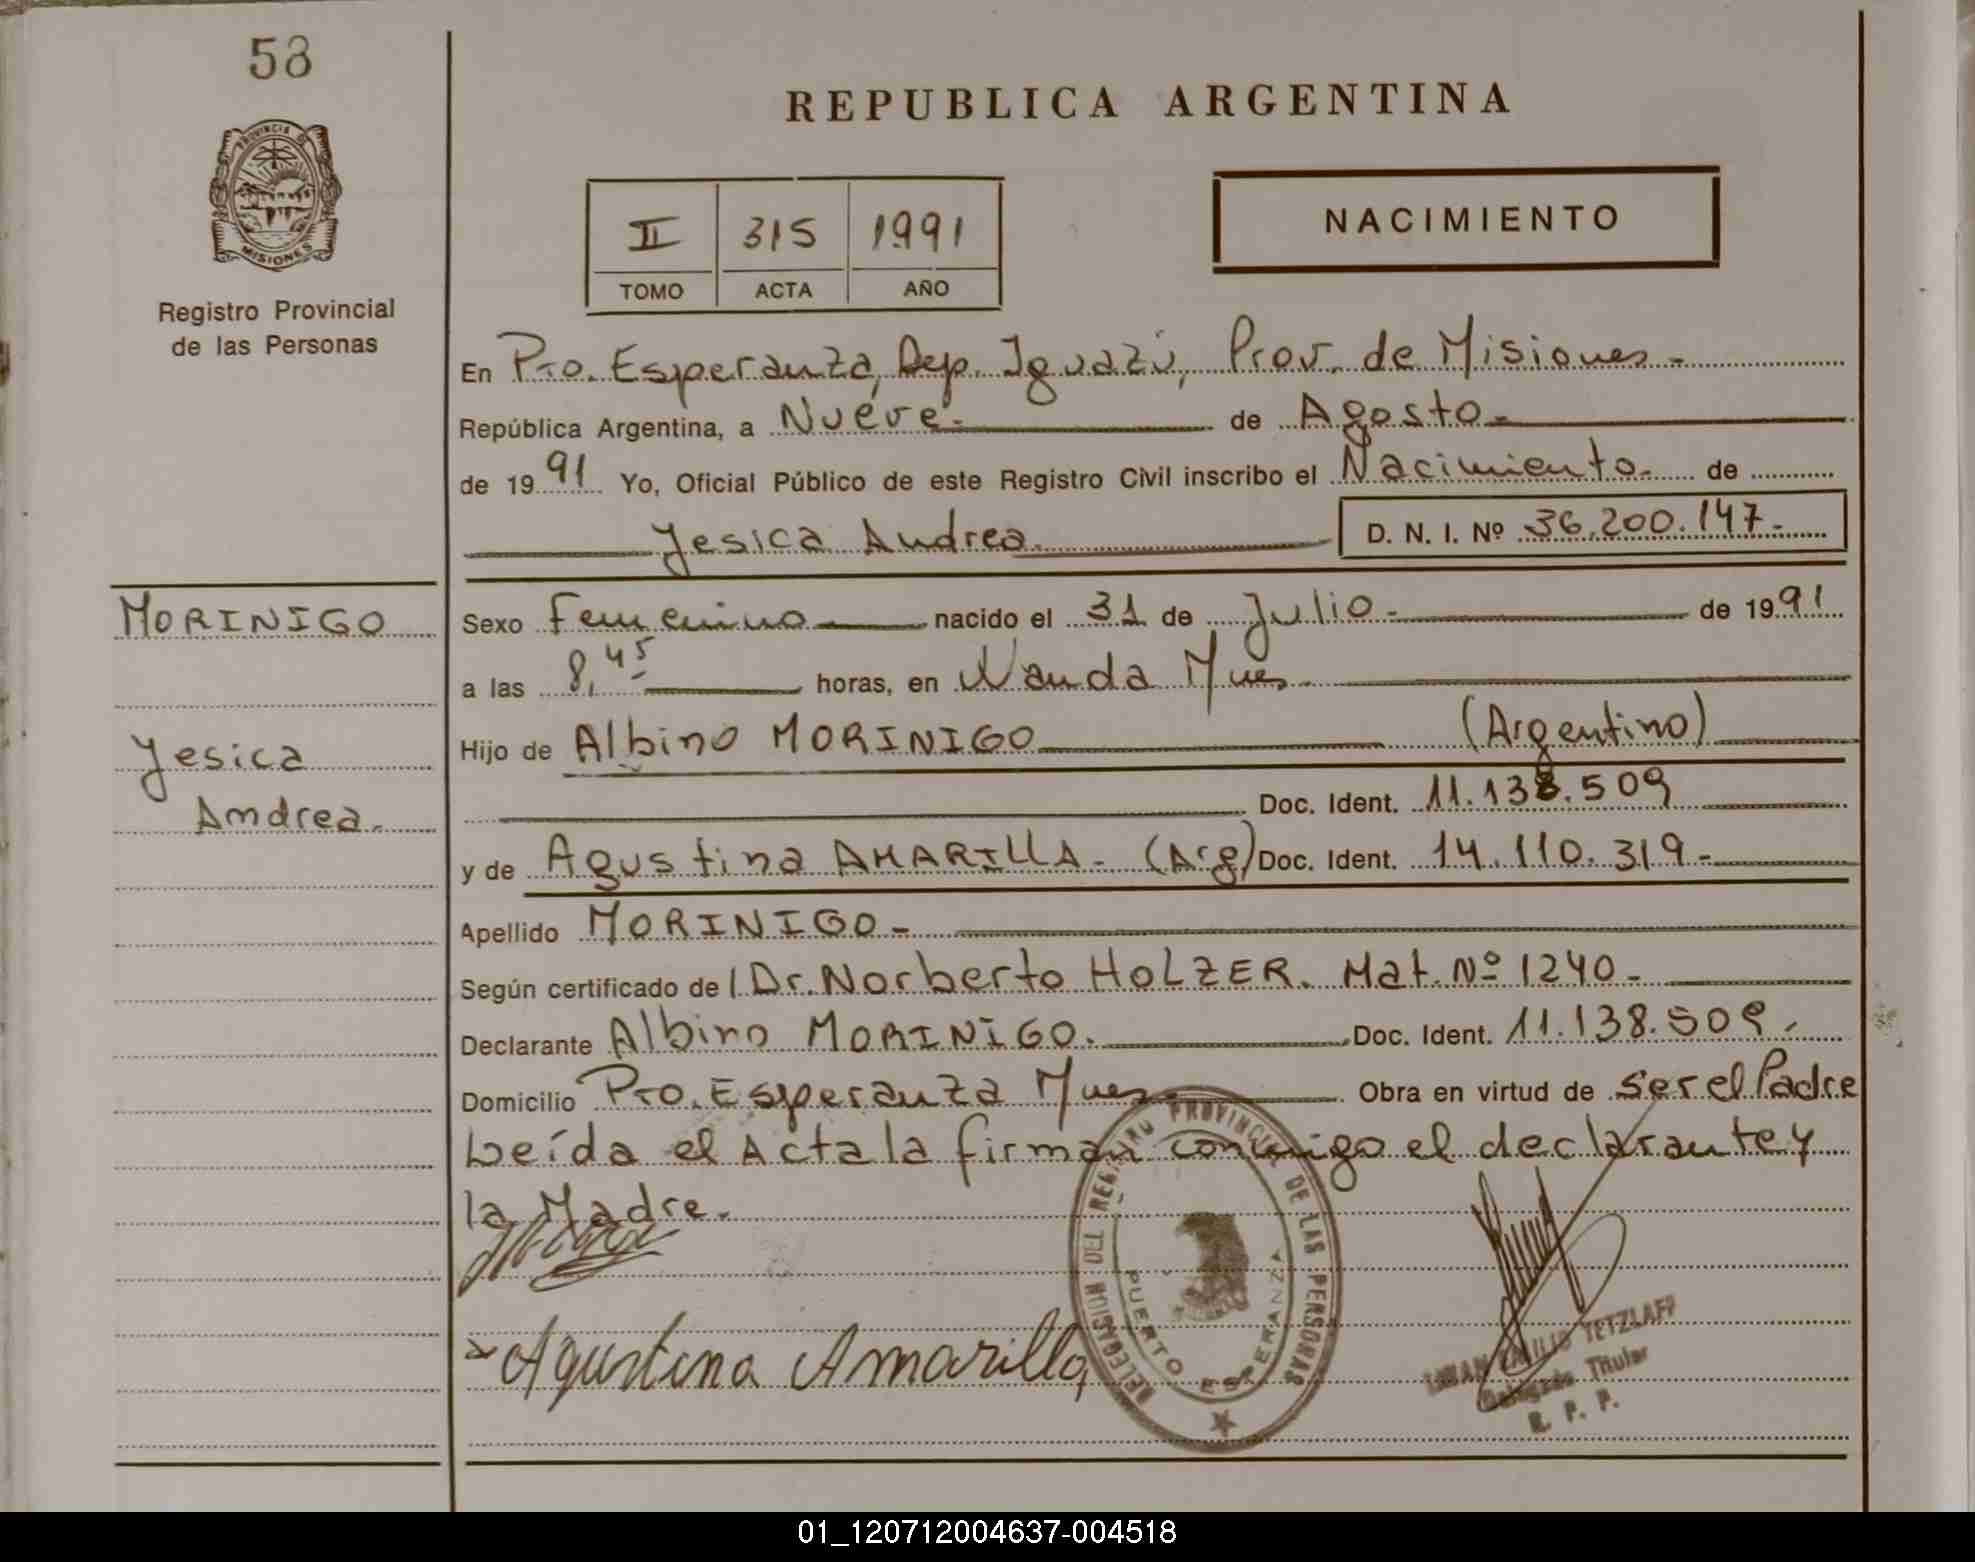 58
REPUBLICA ARGENTINA
PROVINCIA DE
MISIONES
II 315 1991
TOMO ACTA AÑO
NACIMIENTO
Registro Provincial
de las Personas
En Pto. Esperanza, Dep. Iguazú, Prov. de Misiones.-
República Argentina, a Nueve.- de Agosto.-
de 1991 Yo, Oficial Público de este Registro Civil inscribo el Nacimiento. de
Yesica Andrea. D. N. I. Nº 36.200.147.-
MORINIGO
Yesica
Andrea.-
Sexo Femenino nacido el 31 de Julio.- de 1991
a las 8,45 horas, en Wanda Mnes.
Hijo de Albino MORINIGO (Argentino)
Doc. Ident. 11.138.509
y de Agustina AMARILLA.- (Arg) Doc. Ident. 14.110.319.-
Apellido MORINIGO.-
Según certificado de Dr. Norberto HOLZER. Mat. Nº 1240.-
Declarante Albino MORINIGO. Doc. Ident. 11.138.509.
Domicilio Pto. Esperanza Mnes. Obra en virtud de ser el Padre
Leída el Acta la firman conmigo el declarante y
la Madre.
Agustina Amarilla
DELEGACION DEL REGISTRO PROVINCIAL DE LAS PERSONAS
PUERTO ESPERANZA
EMILIO TETZLAFF
Delegado Titular
R. P. P.
01_120712004637-004518